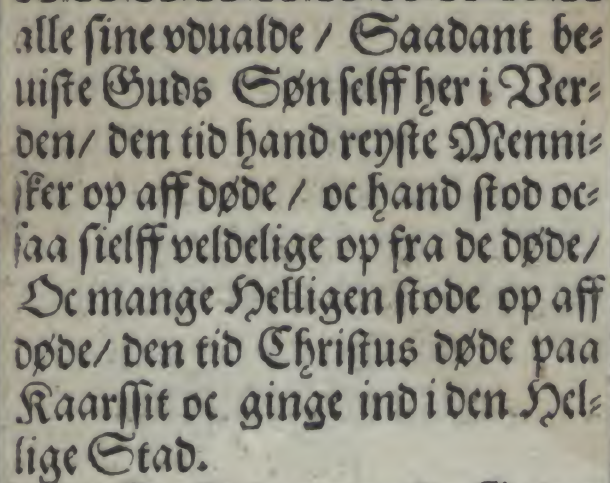 alle sine vdualde / Saadant be⸗
uiste Guds Søn selff her i Ver⸗
den / den tid hand reyste Menni⸗
sker op aff døde / oc hand stod oc⸗
saa sielff veldelige op fra de døde /
Oc mange Helligen stode op aff
døde / den tid Christus døde paa
Kaarssit oc ginge ind i den Hel⸗
lige Stad.